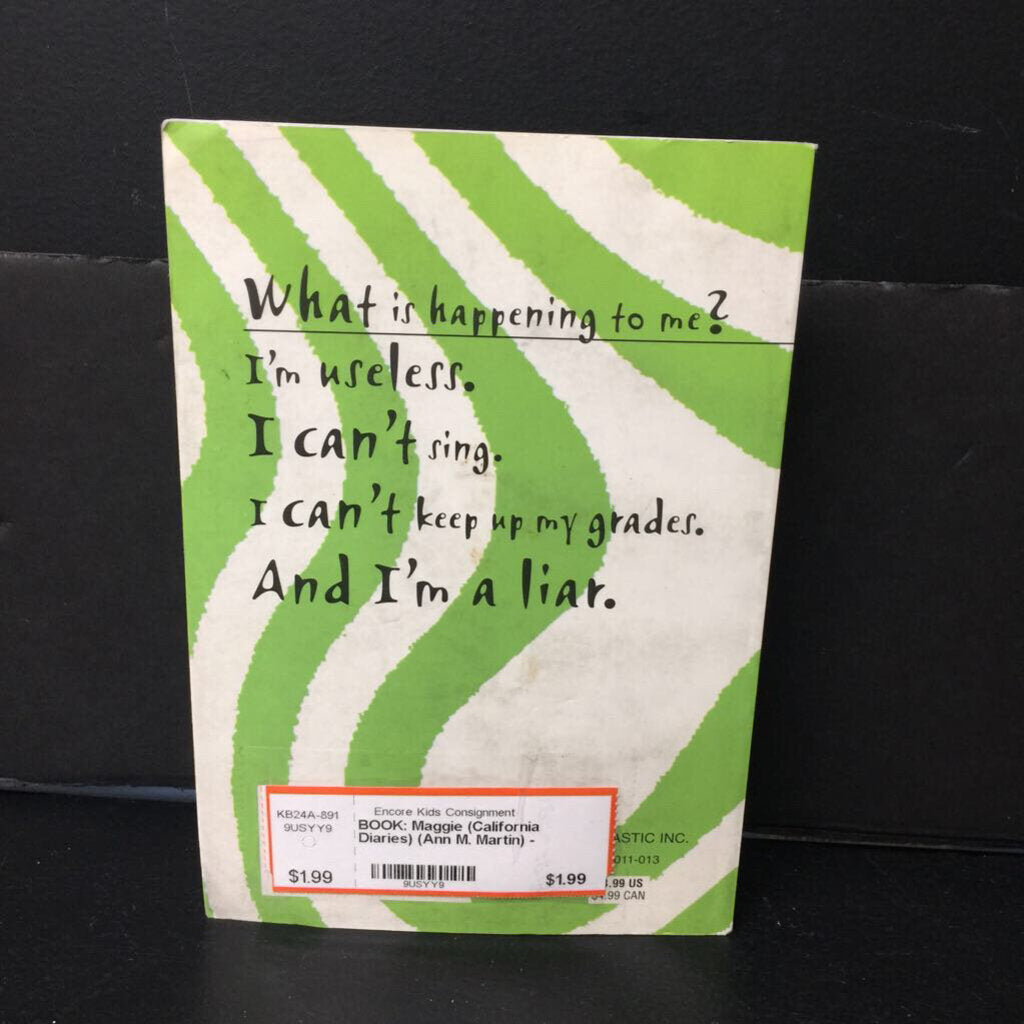 What is happening to me?
I'm useless.
I can't sing.
I can't keep up my grades.
And I'm a liar.
KB24A-891
9USYY9
$1.99
Encore Kids Consignment
BOOK: Maggie (California
Diaries) (Ann M. Martin) -
9USYY9
$1.99
ASTIC INC.
011-013
.99 US
.99 CAN